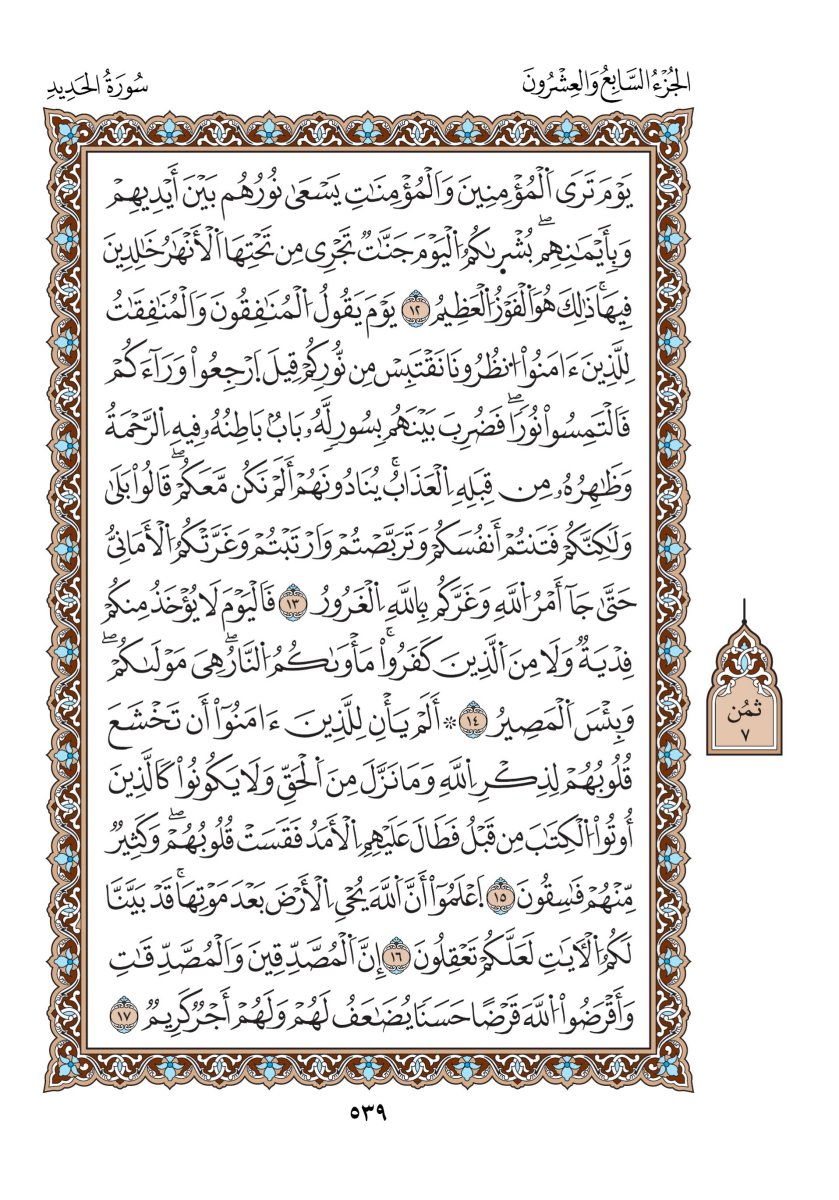 الجُزْءُ السَّابِعُ وَالعِشْرُونَ
سُورَةُ الحَدِيدِ
يَوْمَ تَرَى اَ۬لْمُؤْمِنِينَ وَالْمُؤْمِنَٰتِ يَسْعَىٰ نُورُهُم بَيْنَ أَيْدِيهِمْ
وَبِأَيْمَٰنِهِمۖ بُشْر۪ىٰكُمُ اُ۬لْيَوْمَ جَنَّٰتٌ تَجْرِي مِن تَحْتِهَا اَ۬لْأَنْهَٰرُ خَٰلِدِينَ
فِيهَاۚ ذَٰلِكَ هُوَ اَ۬لْفَوْزُ اُ۬لْعَظِيمُ ١٢ يَوْمَ يَقُولُ اُ۬لْمُنَٰفِقُونَ وَالْمُنَٰفِقَٰتُ
لِلَّذِينَ ءَامَنُواْ اُ۟نظُرُونَا نَقْتَبِسْ مِن نُّورِكُمْ قِيلَ اَ۪رْجِعُواْ وَرَآءَكُمْ
فَالْتَمِسُواْ نُورٗاۖ فَضُرِبَ بَيْنَهُم بِسُورٖ لَّهُۥ بَابُۢ بَاطِنُهُۥ فِيهِ اِ۬لرَّحْمَةُ
وَظَٰهِرُهُۥ مِن قِبَلِهِ اِ۬لْعَذَابُۚ يُنَادُونَهُمْ أَلَمْ نَكُن مَّعَكُمْۖ قَالُواْ بَلَىٰ
وَلَٰكِنَّكُمْ فَتَنتُمْ أَنفُسَكُمْ وَتَرَبَّصْتُمْ وَارْتَبْتُمْ وَغَرَّتْكُمُ اُ۬لْأَمَانِيُّ
حَتَّىٰ جَآ أَمْرُ اُ۬للَّهِ وَغَرَّكُم بِاللَّهِ اِ۬لْغَرُورُ ١٣ فَالْيَوْمَ لَا يُؤْخَذُ مِنكُمْ
فِدْيَةٞ وَلَا مِنَ اَ۬لَّذِينَ كَفَرُواْۚ مَأْوَىٰكُمُ اُ۬لنَّارُۖ هِيَ مَوْلَىٰكُمْۖ
وَبِئْسَ اَ۬لْمَصِيرُ ١٤ ۞ أَلَمْ يَأْنِ لِلَّذِينَ ءَامَنُوٓاْ أَن تَخْشَعَ
قُلُوبُهُمْ لِذِكْرِ اِ۬للَّهِ وَمَا نَزَّلَ مِنَ اَ۬لْحَقِّ وَلَا يَكُونُواْ كَالَّذِينَ
أُوتُواْ اُ۬لْكِتَٰبَ مِن قَبْلُ فَطَالَ عَلَيْهِمِ اِ۬لْأَمَدُ فَقَسَتْ قُلُوبُهُمْۖ وَكَثِيرٞ
مِّنْهُمْ فَٰسِقُونَ ١٥ اَ۪عْلَمُوٓاْ أَنَّ اَ۬للَّهَ يُحْيِ اِ۬لْأَرْضَ بَعْدَ مَوْتِهَاۚ قَدْ بَيَّنَّا
لَكُمُ اُ۬لْأٓيَٰتِ لَعَلَّكُمْ تَعْقِلُونَ ١٦ إِنَّ اَ۬لْمُصَّدِّقِينَ وَالْمُصَّدِّقَٰتِ
وَأَقْرَضُواْ اُ۬للَّهَ قَرْضًا حَسَنٗا يُضَٰعَفُ لَهُمْ وَلَهُمْ أَجْرٞ كَرِيمٞ ١٧
ثمُن
٧
٥٣٩